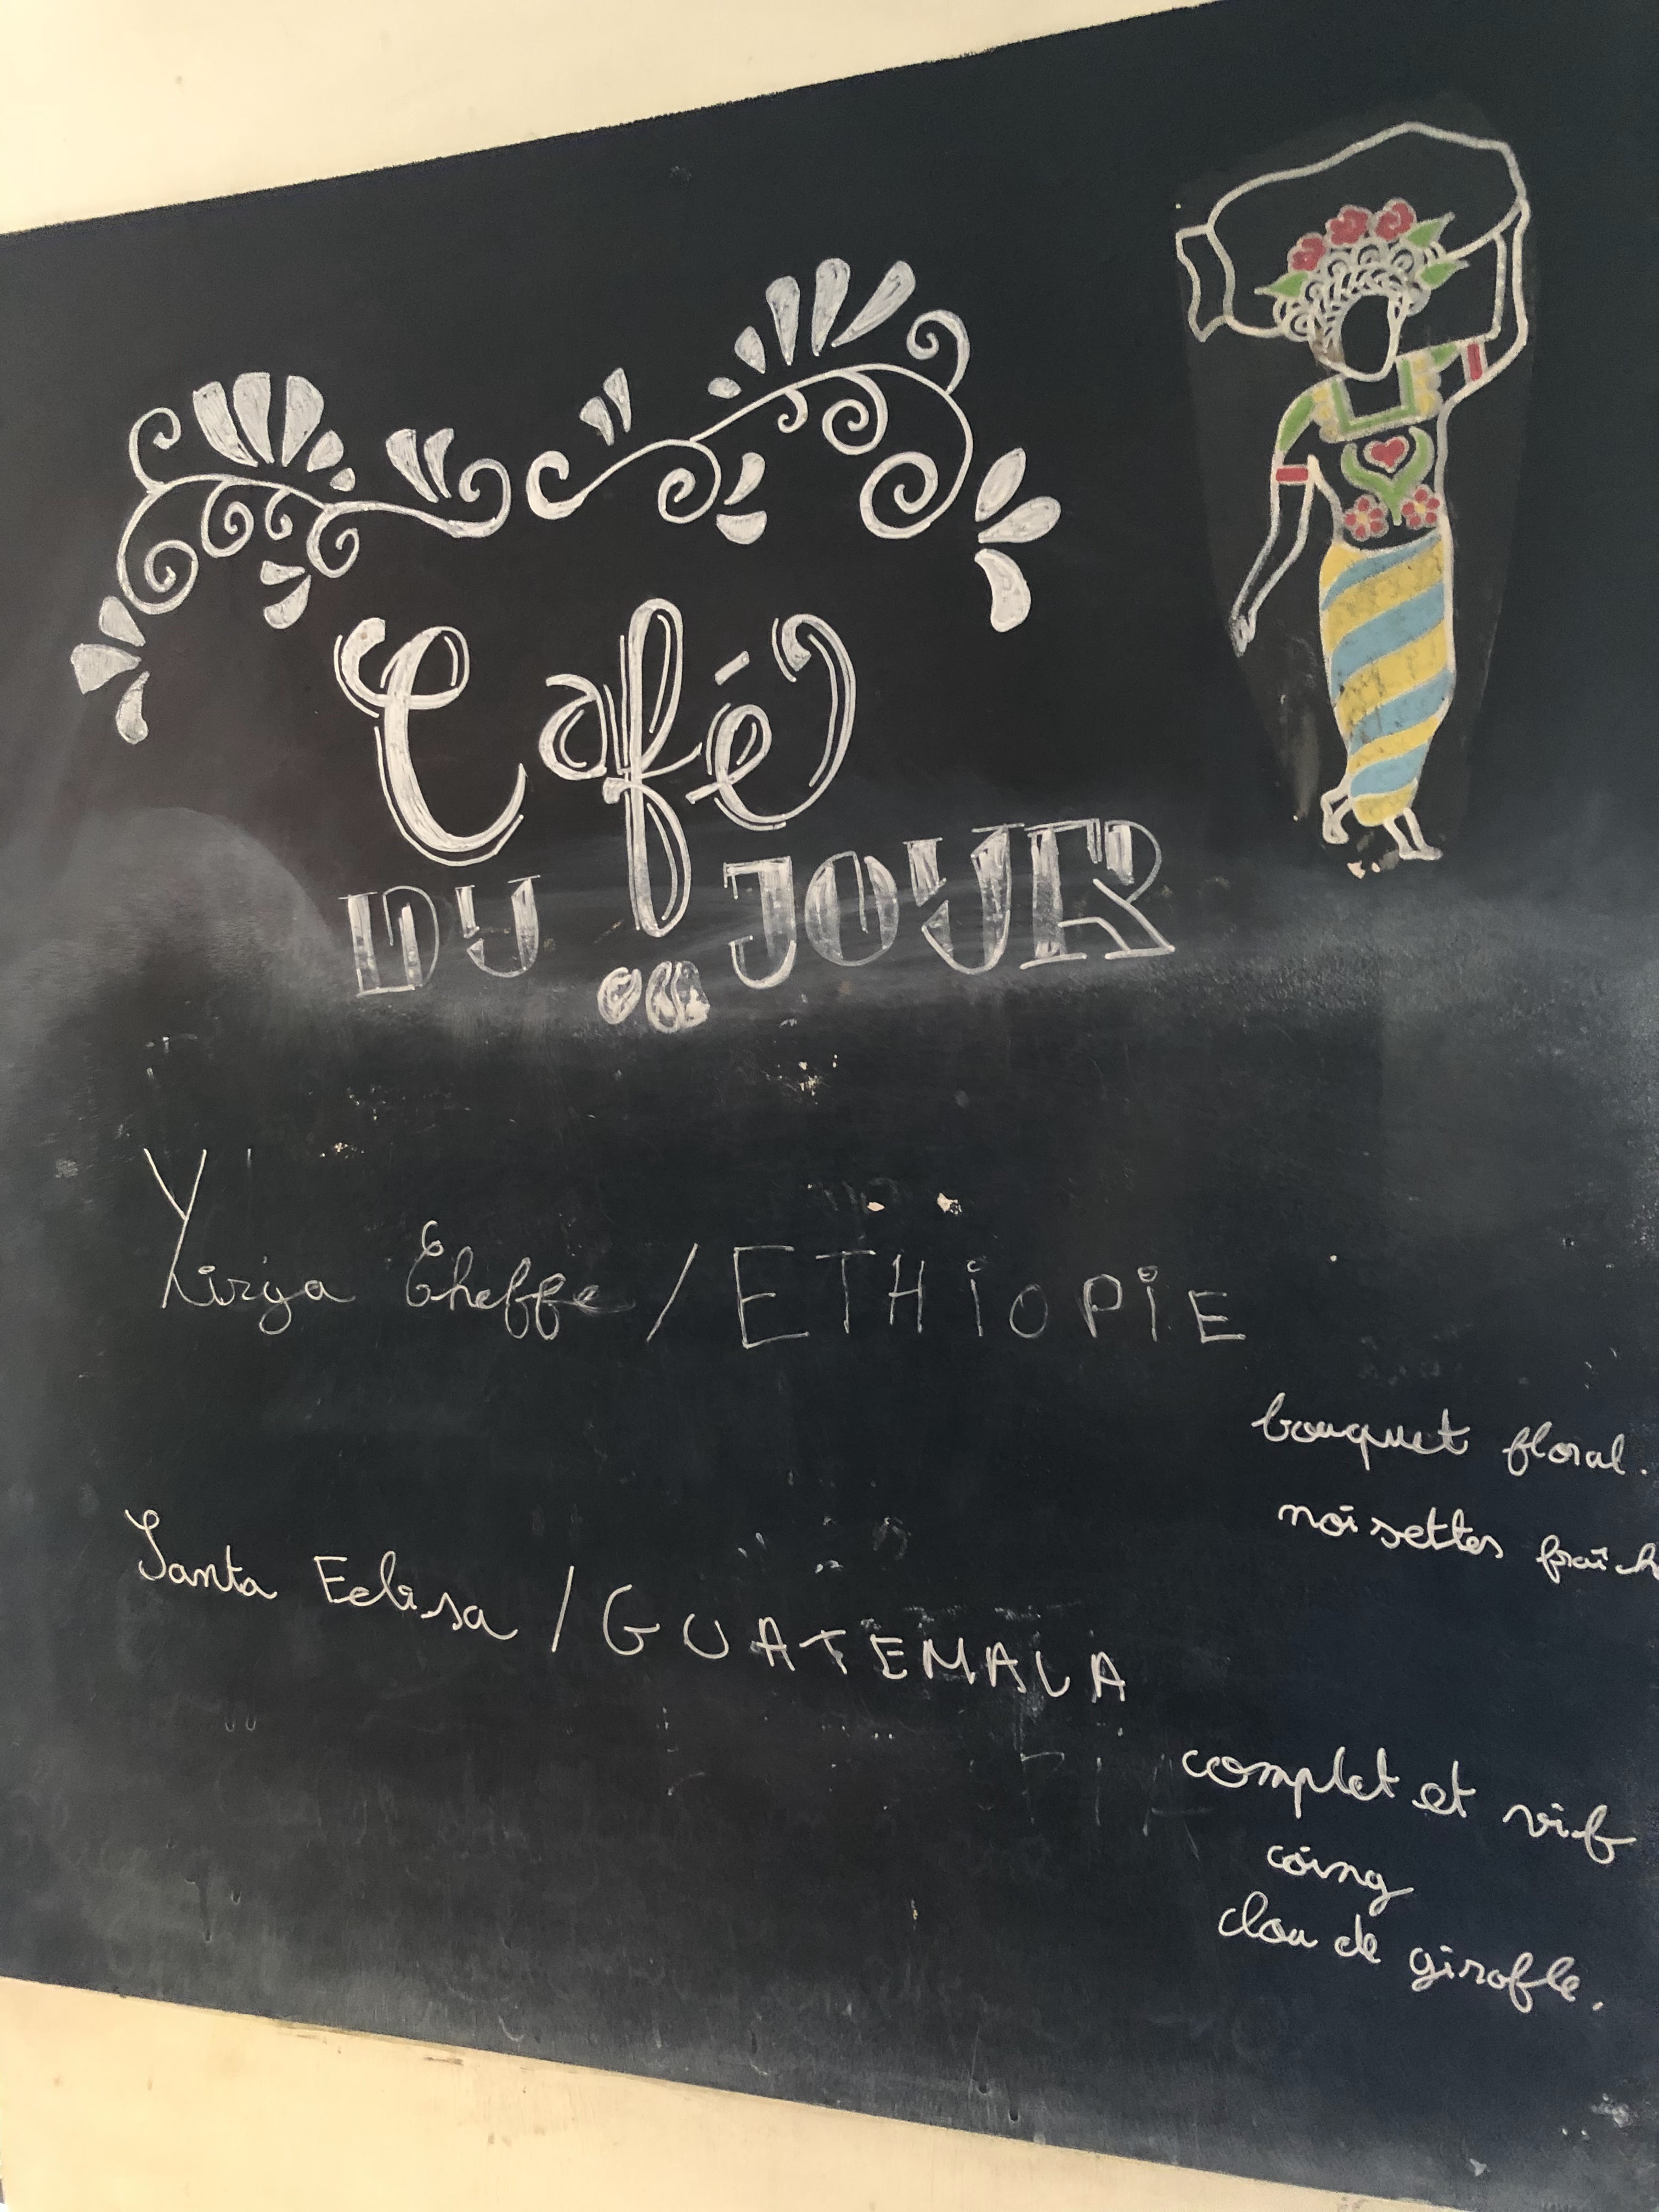 Café
DU JOUR
Yirga Cheffe / ETHiOPiE
bouquet floral.
noisettes fraîch
Santa Eelisa / GUATEMALA
complet et vif
coing
clou de girofle.